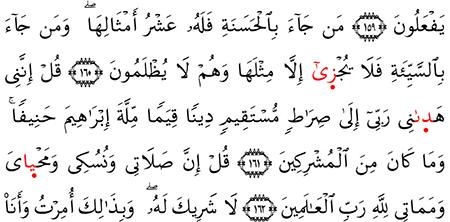 يَفْعَلُونَ ۝١٥٩ مَن جَآءَ بِٱلْحَسَنَةِ فَلَهُۥ عَشْرُ أَمْثَالِهَا ۖ وَمَن جَآءَ
بِٱلسَّيِّئَةِ فَلَا يُجْزَىٰٓ إِلَّا مِثْلَهَا وَهُمْ لَا يُظْلَمُونَ ۝١٦٠ قُلْ إِنَّنِى
هَدَىٰنِى رَبِّىٓ إِلَىٰ صِرَٰطٍ مُّسْتَقِيمٍ دِينًا قِيَمًا مِّلَّةَ إِبْرَٰهِيمَ حَنِيفًا ۚ
وَمَا كَانَ مِنَ ٱلْمُشْرِكِينَ ۝١٦١ قُلْ إِنَّ صَلَاتِى وَنُسُكِى وَمَحْيَاىَ
وَمَمَاتِى لِلَّهِ رَبِّ ٱلْعَٰلَمِينَ ۝١٦٢ لَا شَرِيكَ لَهُۥ ۖ وَبِذَٰلِكَ أُمِرْتُ وَأَنَا۠